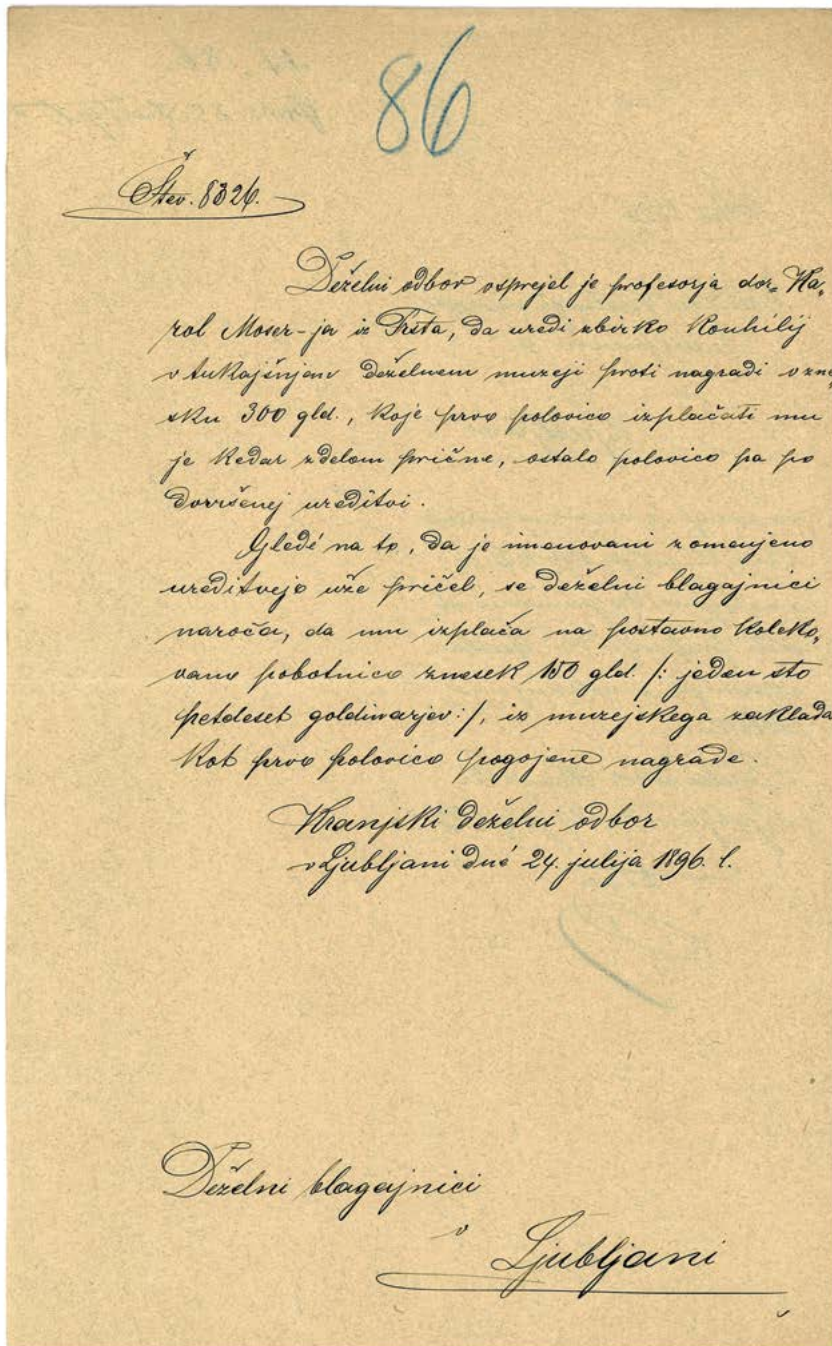 86
Štev. 8326.
Deželni odbor vsprejel je profesorja dor= Ka„
rol Moser-ja iz Trsta, da uredi zbirko Konhilij
v tukajšnjem deželnem muzeji proti nagradi v zne„
sku 300 gld., koje prvo polovico izplačati mu
je kedar z delom prične, ostalo polovico pa po
dovršenej ureditvi.
Gledé na to, da je imenovani z omenjeno
ureditvejo uže pričel, se deželni blagajnici
naroča, da mu izplača na postavno koleko„
vano pobotnico znesek 150 gld. /: jeden sto
petdeset goldinarjev :/, iz muzejskega zaklada
kot prvo polovico pogojene nagrade.
Kranjski deželni odbor
v Ljubljani dné 24. julija 1896. l.
Deželni blagajnici
v
Ljubljani